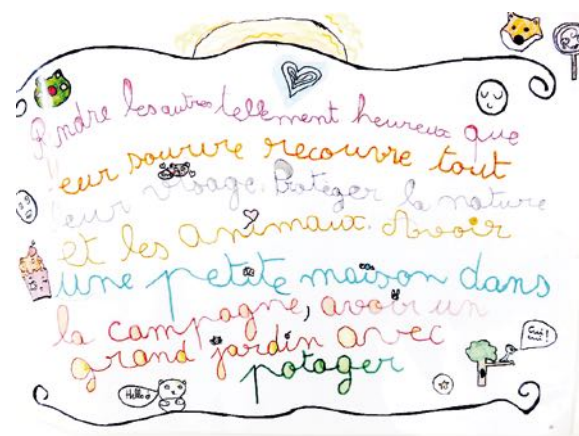 Rendre les autres tellement heureux que
leur sourire recouvre tout
leur visage. Protéger la nature
et les animaux. Avoir
une petite maison dans
la campagne, avoir un
grand jardin avec
potager
Hello
Cui !
cui !